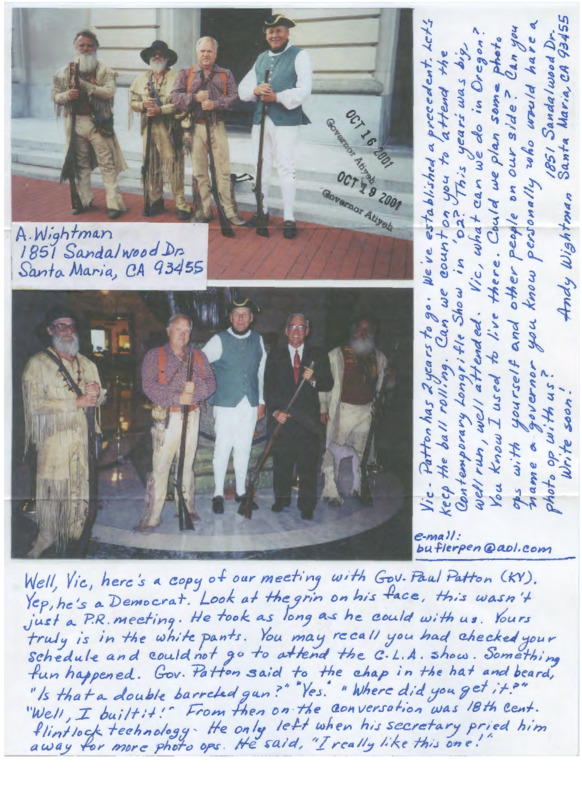 OCT 16 2001
Governor Atiyeh
OCT 19 2001
Governor Atiyeh
A. Wightman
1851 Sandalwood Dr.
Santa Maria, CA 93455
Vic- Patton has 2 years to go. We've established a precedent. Let's
keep the ball rolling. Can we count on you to attend the
Contemporary Longrifle Show in '02? This years was big,
well run, well attended. Vic, what can we do in Oregon?
You know I used to live there. Could we plan some photo
ops with yourself and other people on our side? Can you
name a governor you know personally who would have a
photo op with us?
Write soon!
Andy Wightman
1851 Sandalwood Dr.
Santa Maria, CA 93455
e-mail:
buflerpen@aol.com
Well, Vic, here's a copy of our meeting with Gov. Paul Patton (KY).
Yep, he's a Democrat. Look at the grin on his face, this wasn't
just a P.R. meeting. He took as long as he could with us. Yours
truly is in the white pants. You may recall you had checked your
schedule and could not go to attend the C.L.A. show. Something
fun happened. Gov. Patton said to the chap in the hat and beard,
"Is that a double barreled gun?" "Yes." "Where did you get it?"
"Well, I built it!" From then on the conversation was 18th cent.
flintlock technology. He only left when his secretary pried him
away for more photo ops. He said, "I really like this one!"